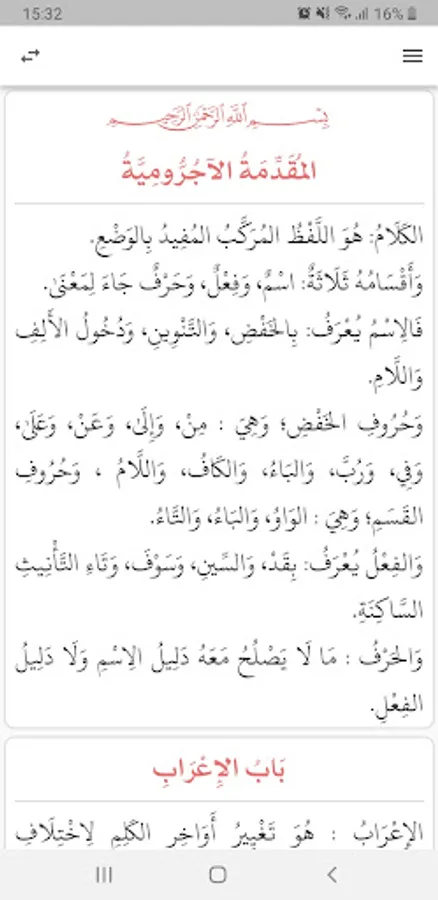 15:32
16%
بِسْمِ اللَّهِ الرَّحْمَٰنِ الرَّحِيمِ
المُقَدِّمَةُ الآجُرُّومِيَّةُ
الكَلَامُ: هُوَ اللَّفْظُ المُرَكَّبُ المُفِيدُ بِالوَضْعِ.
وَأَقْسَامُهُ ثَلَاثَةٌ: اسْمٌ، وَفِعْلٌ، وَحَرْفٌ جَاءَ لِمَعْنَى.
فَالِاسْمُ يُعْرَفُ: بِالخَفْضِ، وَالتَّنْوِينِ، وَدُخُولُ الأَلِفِ
وَاللَّامِ.
وَحُرُوفِ الخَفْضِ؛ وَهِيَ : مِنْ، وَإِلَى، وَعَنْ، وَعَلَى،
وَفِي، وَرُبَّ، وَالبَاءُ، وَالكَافُ، وَاللَّامُ ، وَحُرُوفِ
القَسَمِ؛ وَهِيَ : الوَاوُ، وَالبَاءُ، وَالتَّاءُ.
وَالفِعْلُ يُعْرَفُ: بِقَدْ، وَالسِّينِ، وَسَوْفَ، وَتَاءِ التَّأْنِيثِ
السَّاكِنَةِ.
وَالحَرْفُ : مَا لَا يَصْلُحُ مَعَهُ دَلِيلُ الِاسْمِ وَلَا دَلِيلُ
الفِعْلِ.
بَابُ الإِعْرَابِ
الإِعْرَابُ : هُوَ تَغْيِيرُ أَوَاخِرِ الكَلِمِ لِاخْتِلَافِ